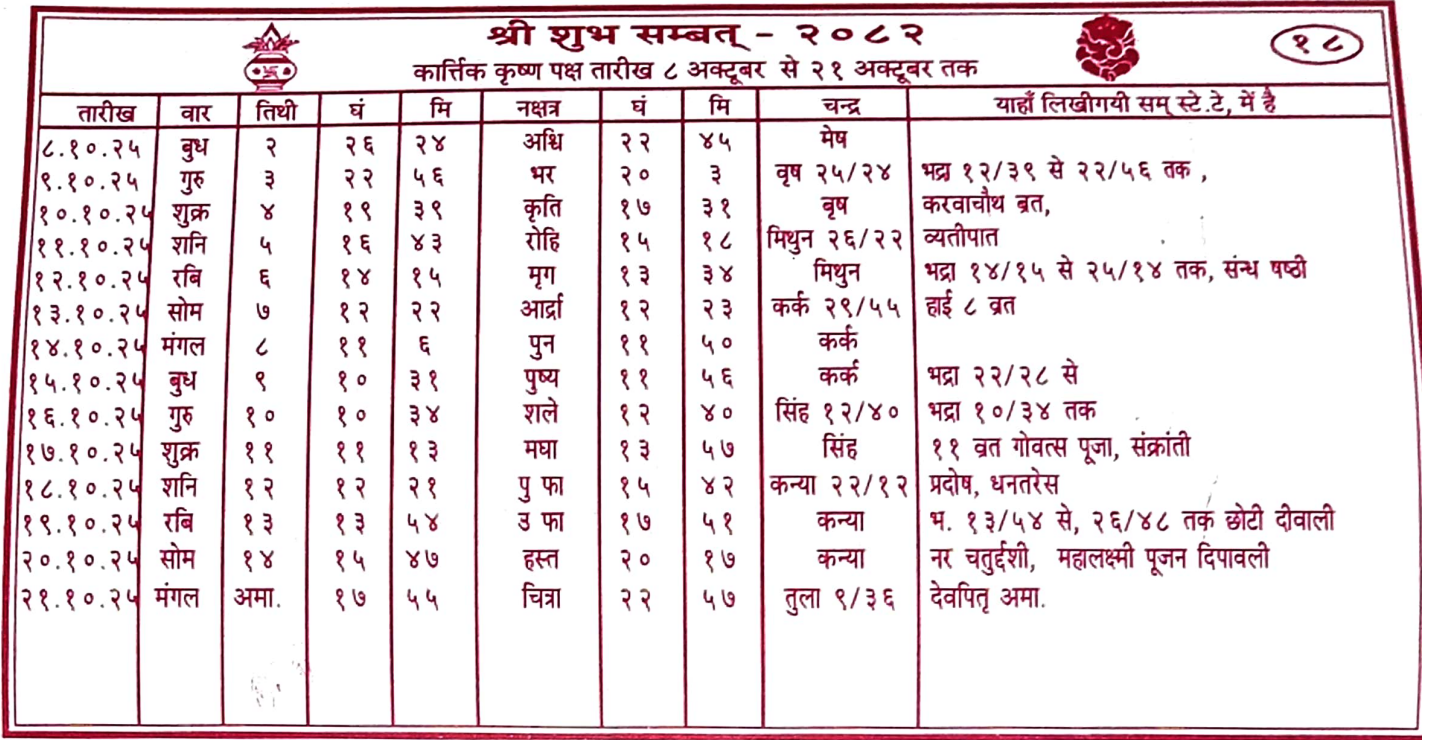 श्री शुभ सम्बत् - २०८२
१८
कार्त्तिक कृष्ण पक्ष तारीख ८ अक्टूबर से २१ अक्टूबर तक
तारीख वार तिथी घं मि नक्षत्र घं मि चन्द्र याहाँ लिखीगयी सम् स्टे.टे, में है
८.१०.२५ बुध २ २६ २४ अश्वि २२ ४५ मेष
९.१०.२५ गुरु ३ २२ ५६ भर २० ३ वृष २५/२४ भद्रा १२/३९ से २२/५६ तक ,
१०.१०.२५ शुक्र ४ १९ ३९ कृति १७ ३१ बृष करवाचौथ ब्रत,
११.१०.२५ शनि ५ १६ ४३ रोहि १५ १८ मिथुन २६/२२ व्यतीपात
१२.१०.२५ रबि ६ १४ १५ मृग १३ ३४ मिथुन भद्रा १४/१५ से २५/१४ तक, संन्ध षष्ठी
१३.१०.२५ सोम ७ १२ २२ आर्द्रा १२ २३ कर्क २९/५५ हाई ८ ब्रत
१४.१०.२५ मंगल ८ ११ ६ पुन ११ ५० कर्क
१५.१०.२५ बुध ९ १० ३१ पुष्य ११ ५६ कर्क भद्रा २२/२८ से
१६.१०.२५ गुरु १० १० ३४ शले १२ ४० सिंह १२/४० भद्रा १०/३४ तक
१७.१०.२५ शुक्र ११ ११ १३ मघा १३ ५७ सिंह ११ ब्रत गोवत्स पूजा, संक्रांती
१८.१०.२५ शनि १२ १२ २१ पु फा १५ ४२ कन्या २२/१२ प्रदोष, धनतरेस
१९.१०.२५ रबि १३ १३ ५४ उ फा १७ ५१ कन्या भ. १३/५४ से, २६/४८ तक छोटी दीवाली
२०.१०.२५ सोम १४ १५ ४७ हस्त २० १७ कन्या नर चतुर्द्दशी, महालक्ष्मी पूजन दिपावली
२१.१०.२५ मंगल अमा. १७ ५५ चित्रा २२ ५७ तुला ९/३६ देवपितृ अमा.